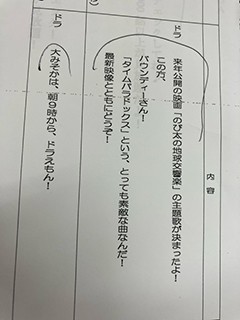 内容
ドラ
来年公開の映画「のび太の地球交響楽」の主題歌が決まったよ！
この方、
バウンディーさん！
「タイムパラドックス」という、とっても素敵な曲なんだ！
最新映像とともにどうぞ！
ドラ
大みそかは、朝9時から、ドラえもん！